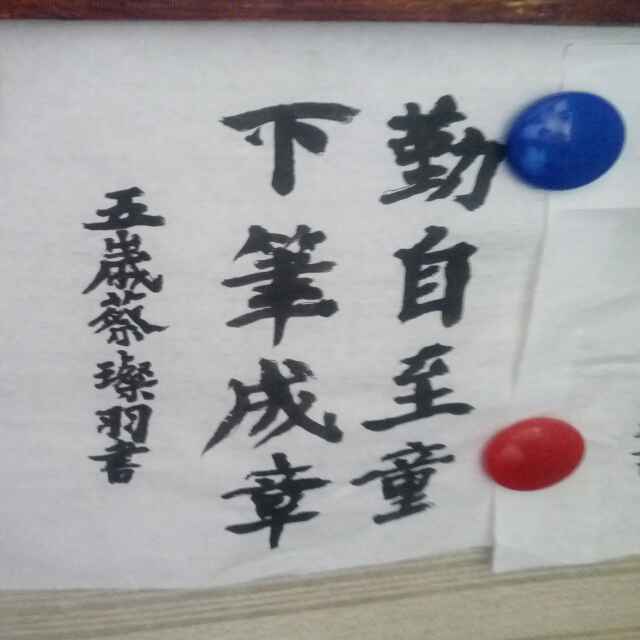 勤自至童
下筆成章
五歲蔡璨羽書